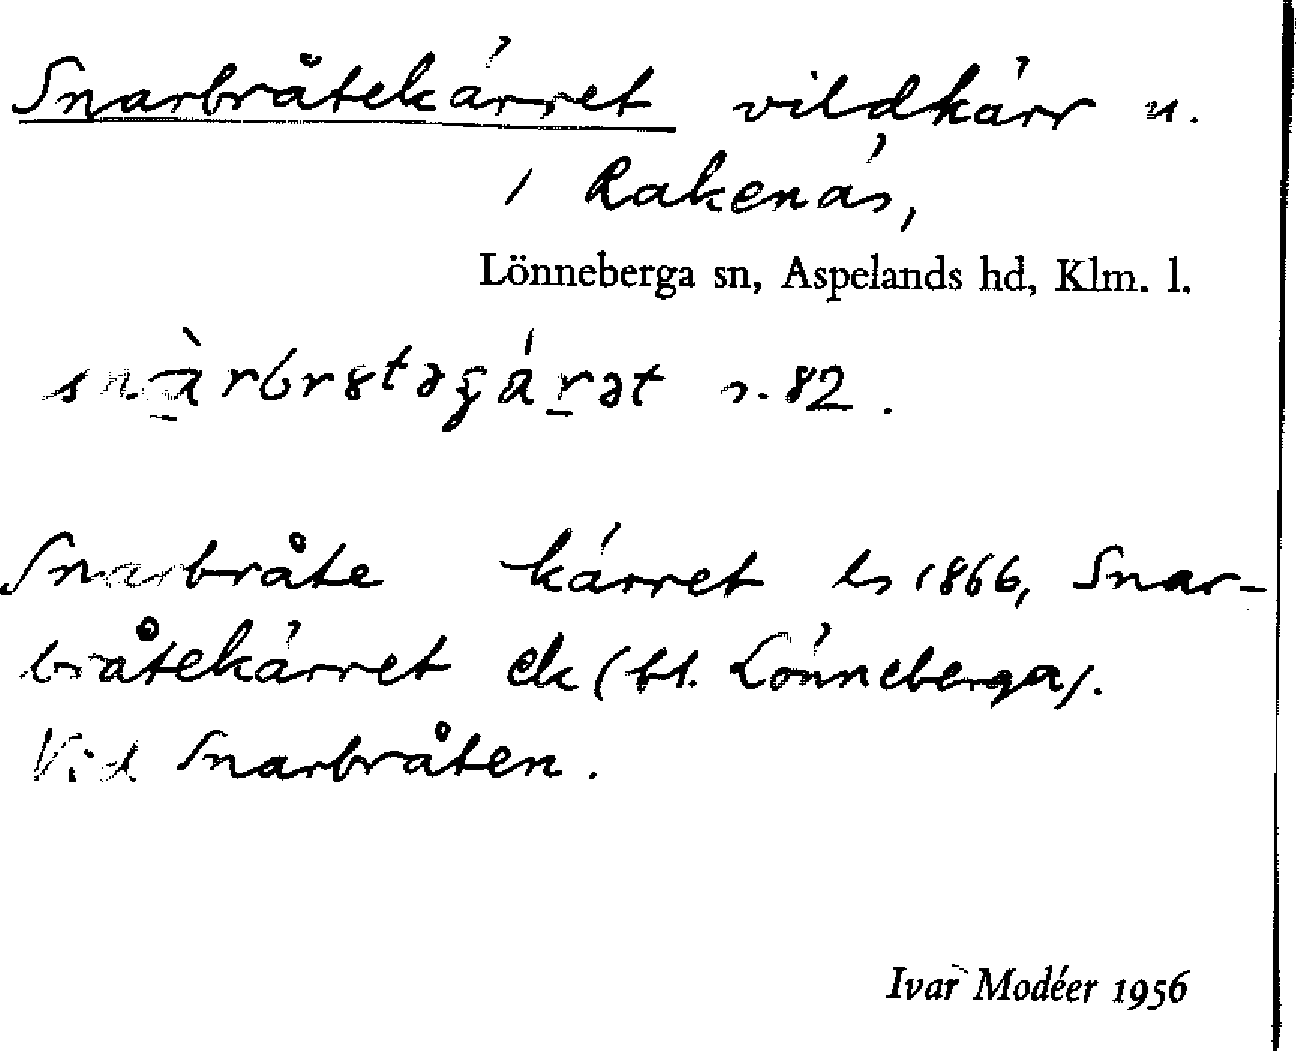 Snarbråtekärret vildkärr u.
i Rakenäs,
Lönneberga sn, Aspelands hd, Klm. l.
s. 82.
Snarbråte kärret ls 1866, Snar-
bråtekärret ek (bl. Lönneberga).
Vid Snarbråten.
Ivar Modéer 1956